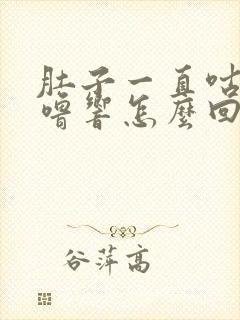 肚子一直咕
嚕響怎麼回
谷萍高